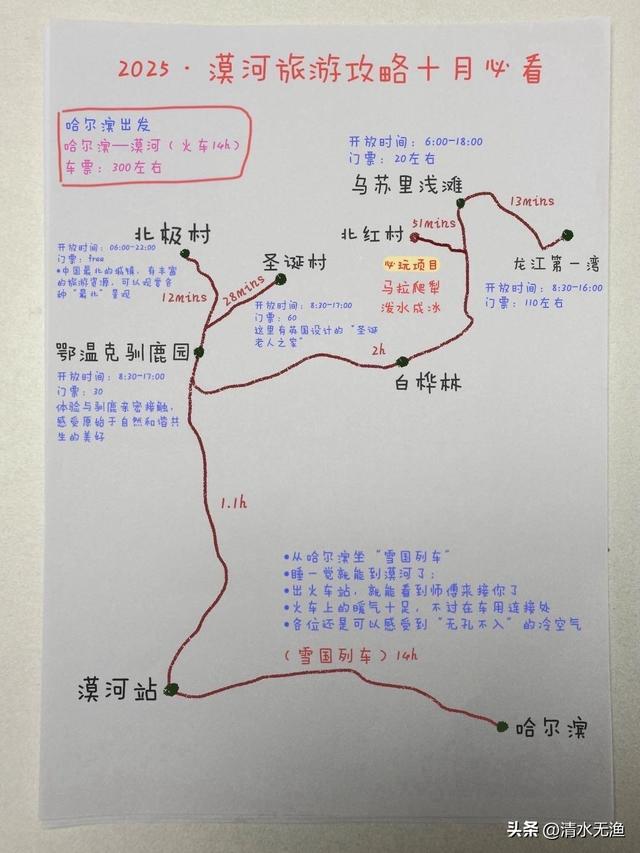 2025·漠河旅游攻略十月必看
哈尔滨出发
哈尔滨—漠河(火车14h)
车票:300左右
开放时间:6:00-18:00
门票:20左右
乌苏里浅滩
13mins
51mins
北红村
龙江第一湾
开放时间:8:30-16:00
门票:110左右
必玩项目
马拉爬犁
泼水成冰
北极村
开放时间:06:00-22:00
门票:free
•中国最北的城镇,有丰富
的旅游资源,可以观赏各
种“最北”景观
12mins
圣诞村
28mins
开放时间:8:30-17:00
门票:60
这里有芬国设计的“圣诞
老人之家”
鄂温克驯鹿园
开放时间:8:30-17:00
门票:30
体验与驯鹿亲密接触,
感受原始于自然和谐共
生的美好
2h
白桦林
1.1h
•从哈尔滨坐“雪国列车”
•睡一觉就能到漠河了;
•出火车站,就能看到师傅来接你了
•火车上的暖气十足,不过在车用连接处
•各位还是可以感受到“无孔不入”的冷空气
(雪国列车)14h
漠河站
哈尔滨
头条@清水无渔